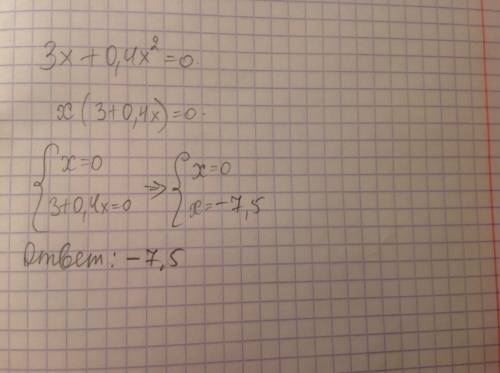 3x + 0,4x² = 0.
x(3+0,4x)=0.
{ x=0 => { x=0
3+0,4x=0 x=-7,5
Ответ: -7,5